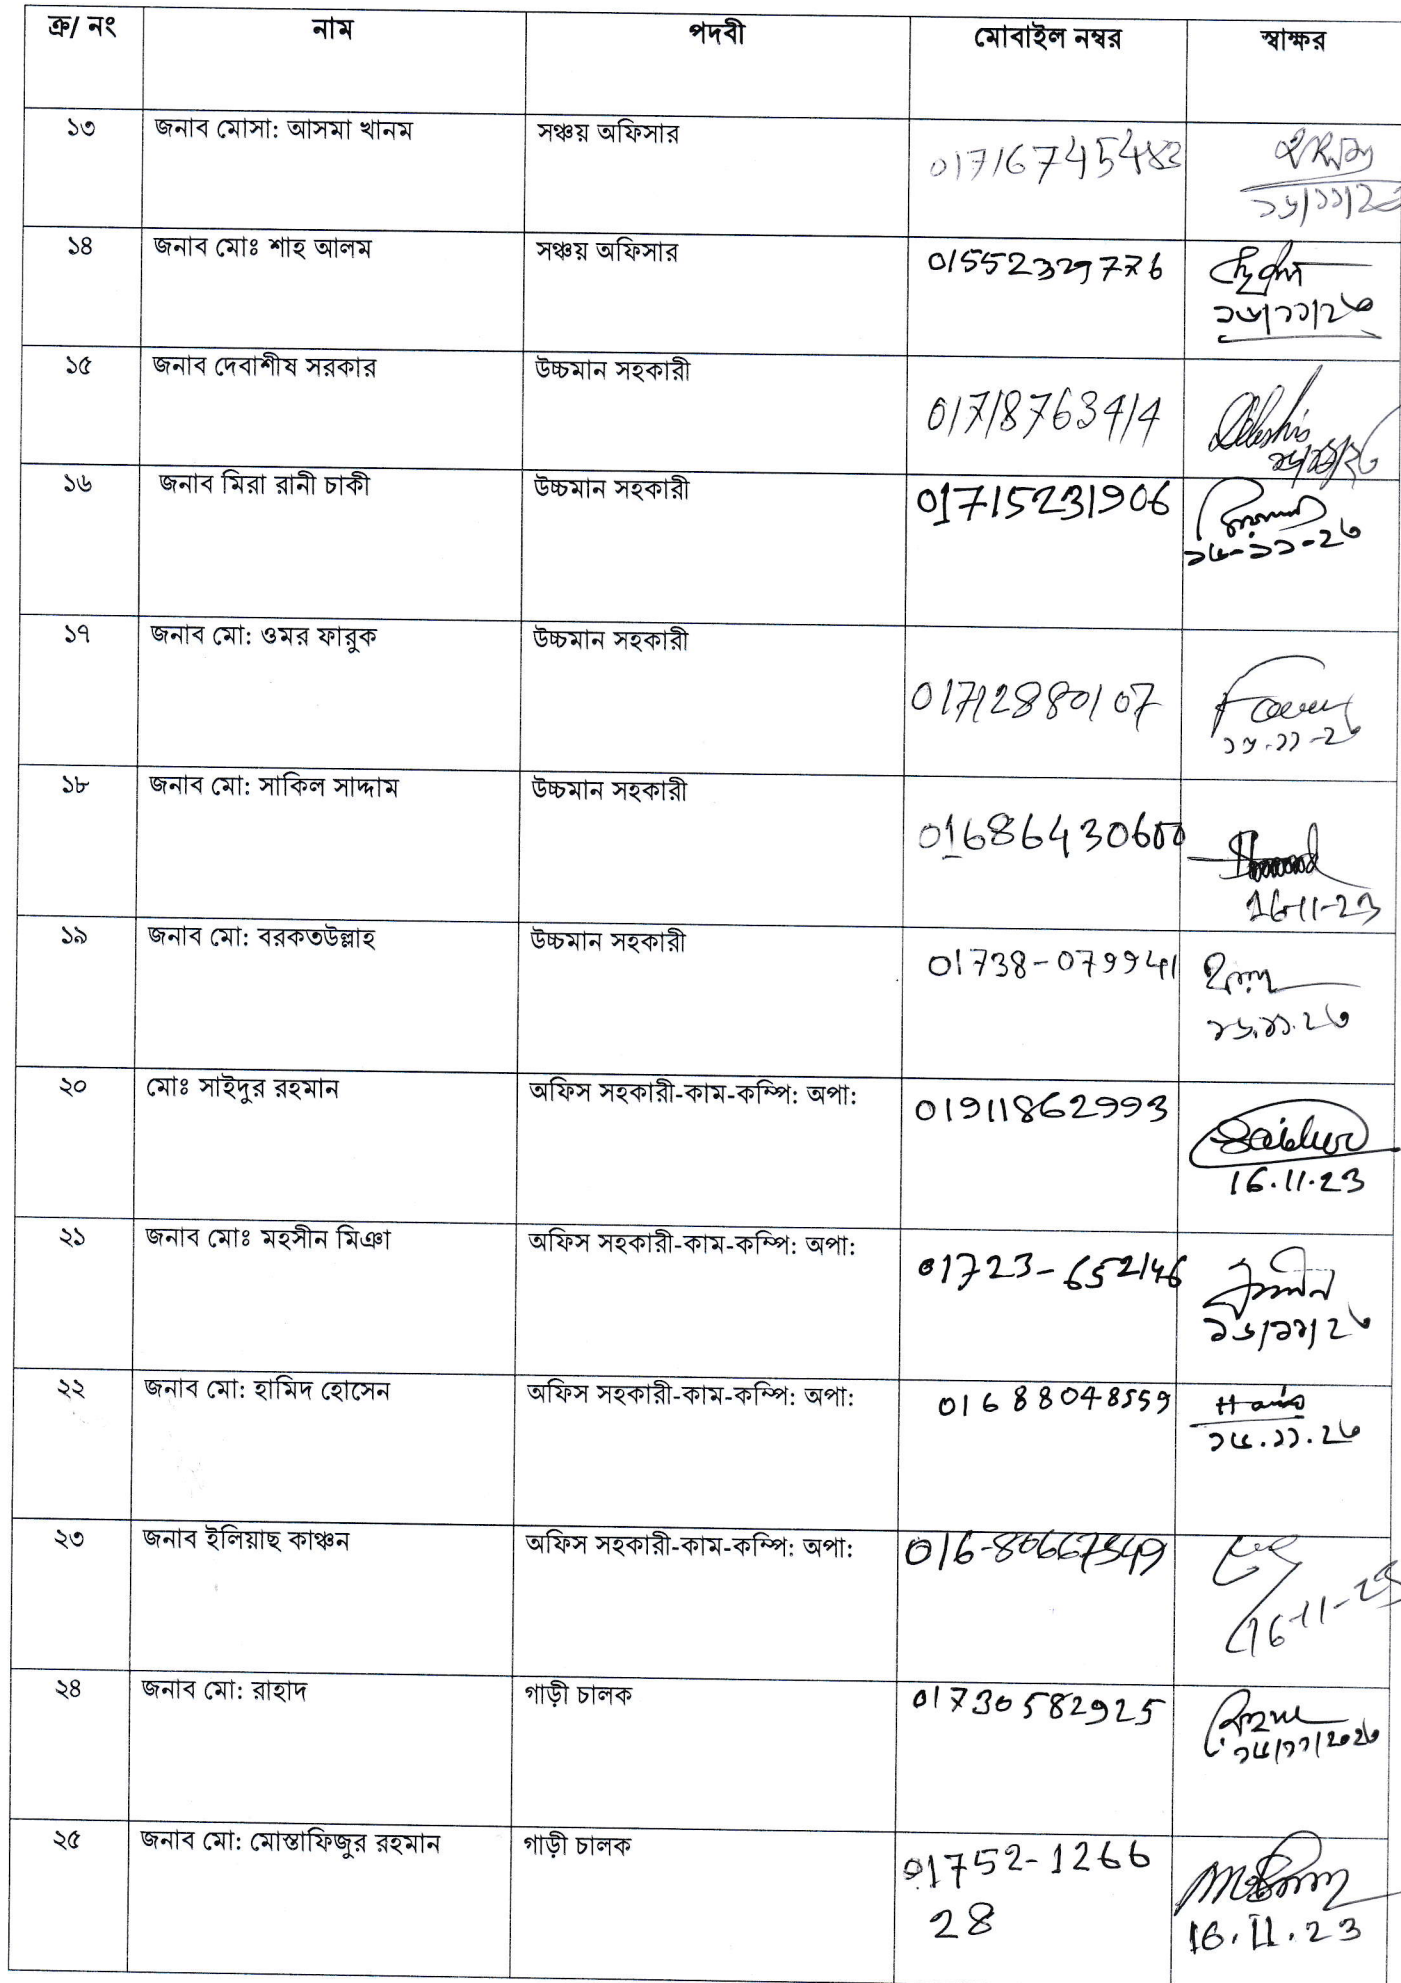 ক্র/ নং নাম পদবী মোবাইল নম্বর স্বাক্ষর
১৩ জনাব মোসা: আসমা খানম সঞ্চয় অফিসার 01716745483
১৬/১১/২৩
১৪ জনাব মোঃ শাহ আলম সঞ্চয় অফিসার 01552329776
১৬/১১/২৩
১৫ জনাব দেবাশীষ সরকার উচ্চমান সহকারী 01718763414 Debashis
১৬ জনাব মিরা রানী চাকী উচ্চমান সহকারী 01715231906
১৬-১১-২৩
১৭ জনাব মো: ওমর ফারুক উচ্চমান সহকারী 01712880107
১৬-১১-২৩
১৮ জনাব মো: সাকিল সাদ্দাম উচ্চমান সহকারী 01686430600
16-11-23
১৯ জনাব মো: বরকতউল্লাহ উচ্চমান সহকারী 01738-079941
১৬.১১.২৩
২০ মোঃ সাইদুর রহমান অফিস সহকারী-কাম-কম্পি: অপা: 01911862993 Saidur
16.11.23
২১ জনাব মোঃ মহসীন মিঞা অফিস সহকারী-কাম-কম্পি: অপা: 01723-652146
১৬/১১/২৩
২২ জনাব মো: হামিদ হোসেন অফিস সহকারী-কাম-কম্পি: অপা: 01688048559 Hamid
১৬.১১.২৩
২৩ জনাব ইলিয়াছ কাঞ্চন অফিস সহকারী-কাম-কম্পি: অপা: 016-80667549
16-11-23
২৪ জনাব মো: রাহাদ গাড়ী চালক 01730582925
১৬/১১/২০২৩
২৫ জনাব মো: মোস্তাফিজুর রহমান গাড়ী চালক 01752-1266
28
16.11.23